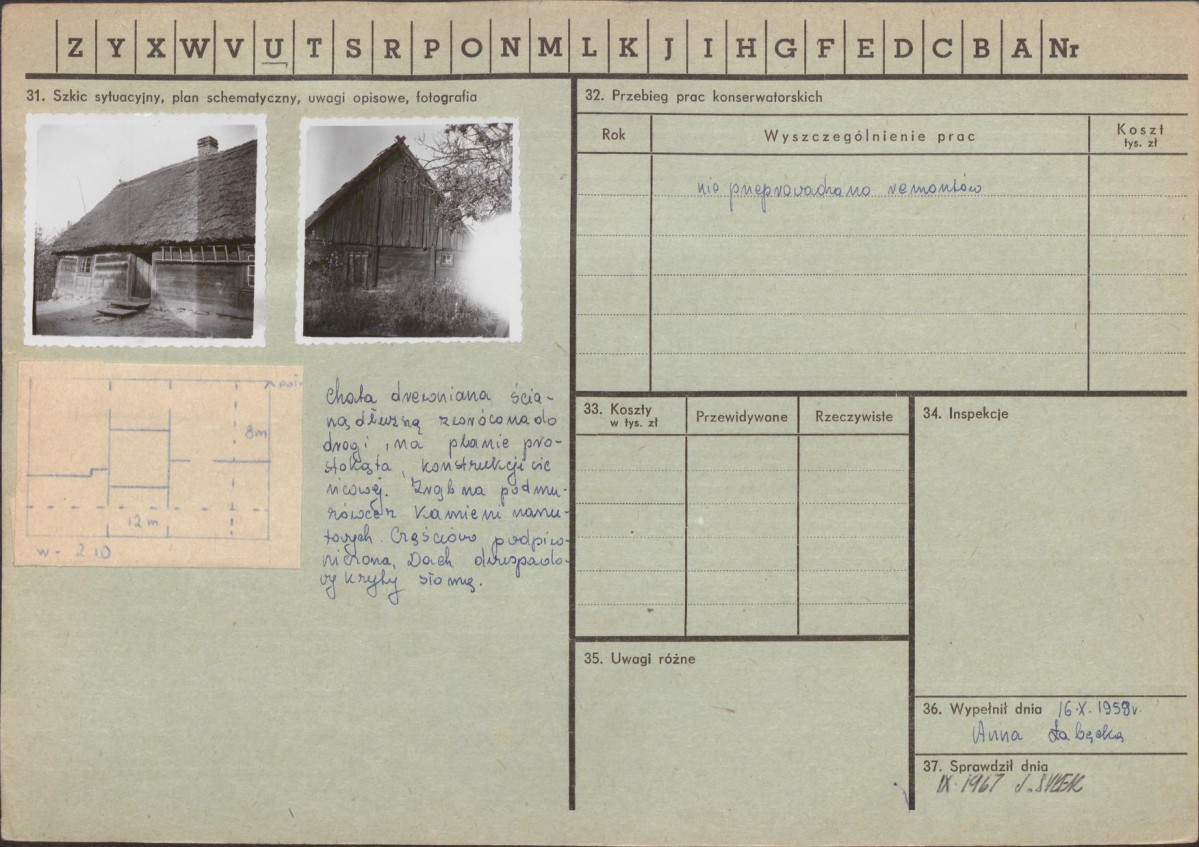 Z Y X W V U T S R P O N M L K J I H G F E D C B A Nr
31. Szkic sytuacyjny, plan schematyczny, uwagi opisowe, fotografia
8m
12 m
w - 2.10
Chata drewniana ścia-
ną dłuższą zwrócona do
drogi, na planie pro-
stokąta, konstrukcji wie
ńcowej. Zrąb na podmu-
rówce z kamieni narzu-
towych. Częściowo podpiw-
niczona. Dach dwuspado-
wy kryty słomą.
32. Przebieg prac konserwatorskich
Rok
Wyszczególnienie prac
Koszt
tys. zł
nie przeprowadzano remontów
33. Koszty
w tys. zł
Przewidywane
Rzeczywiste
34. Inspekcje
35. Uwagi różne
36. Wypełnił dnia 16.X.1959r.
Anna
37. Sprawdził dnia
IX 1967